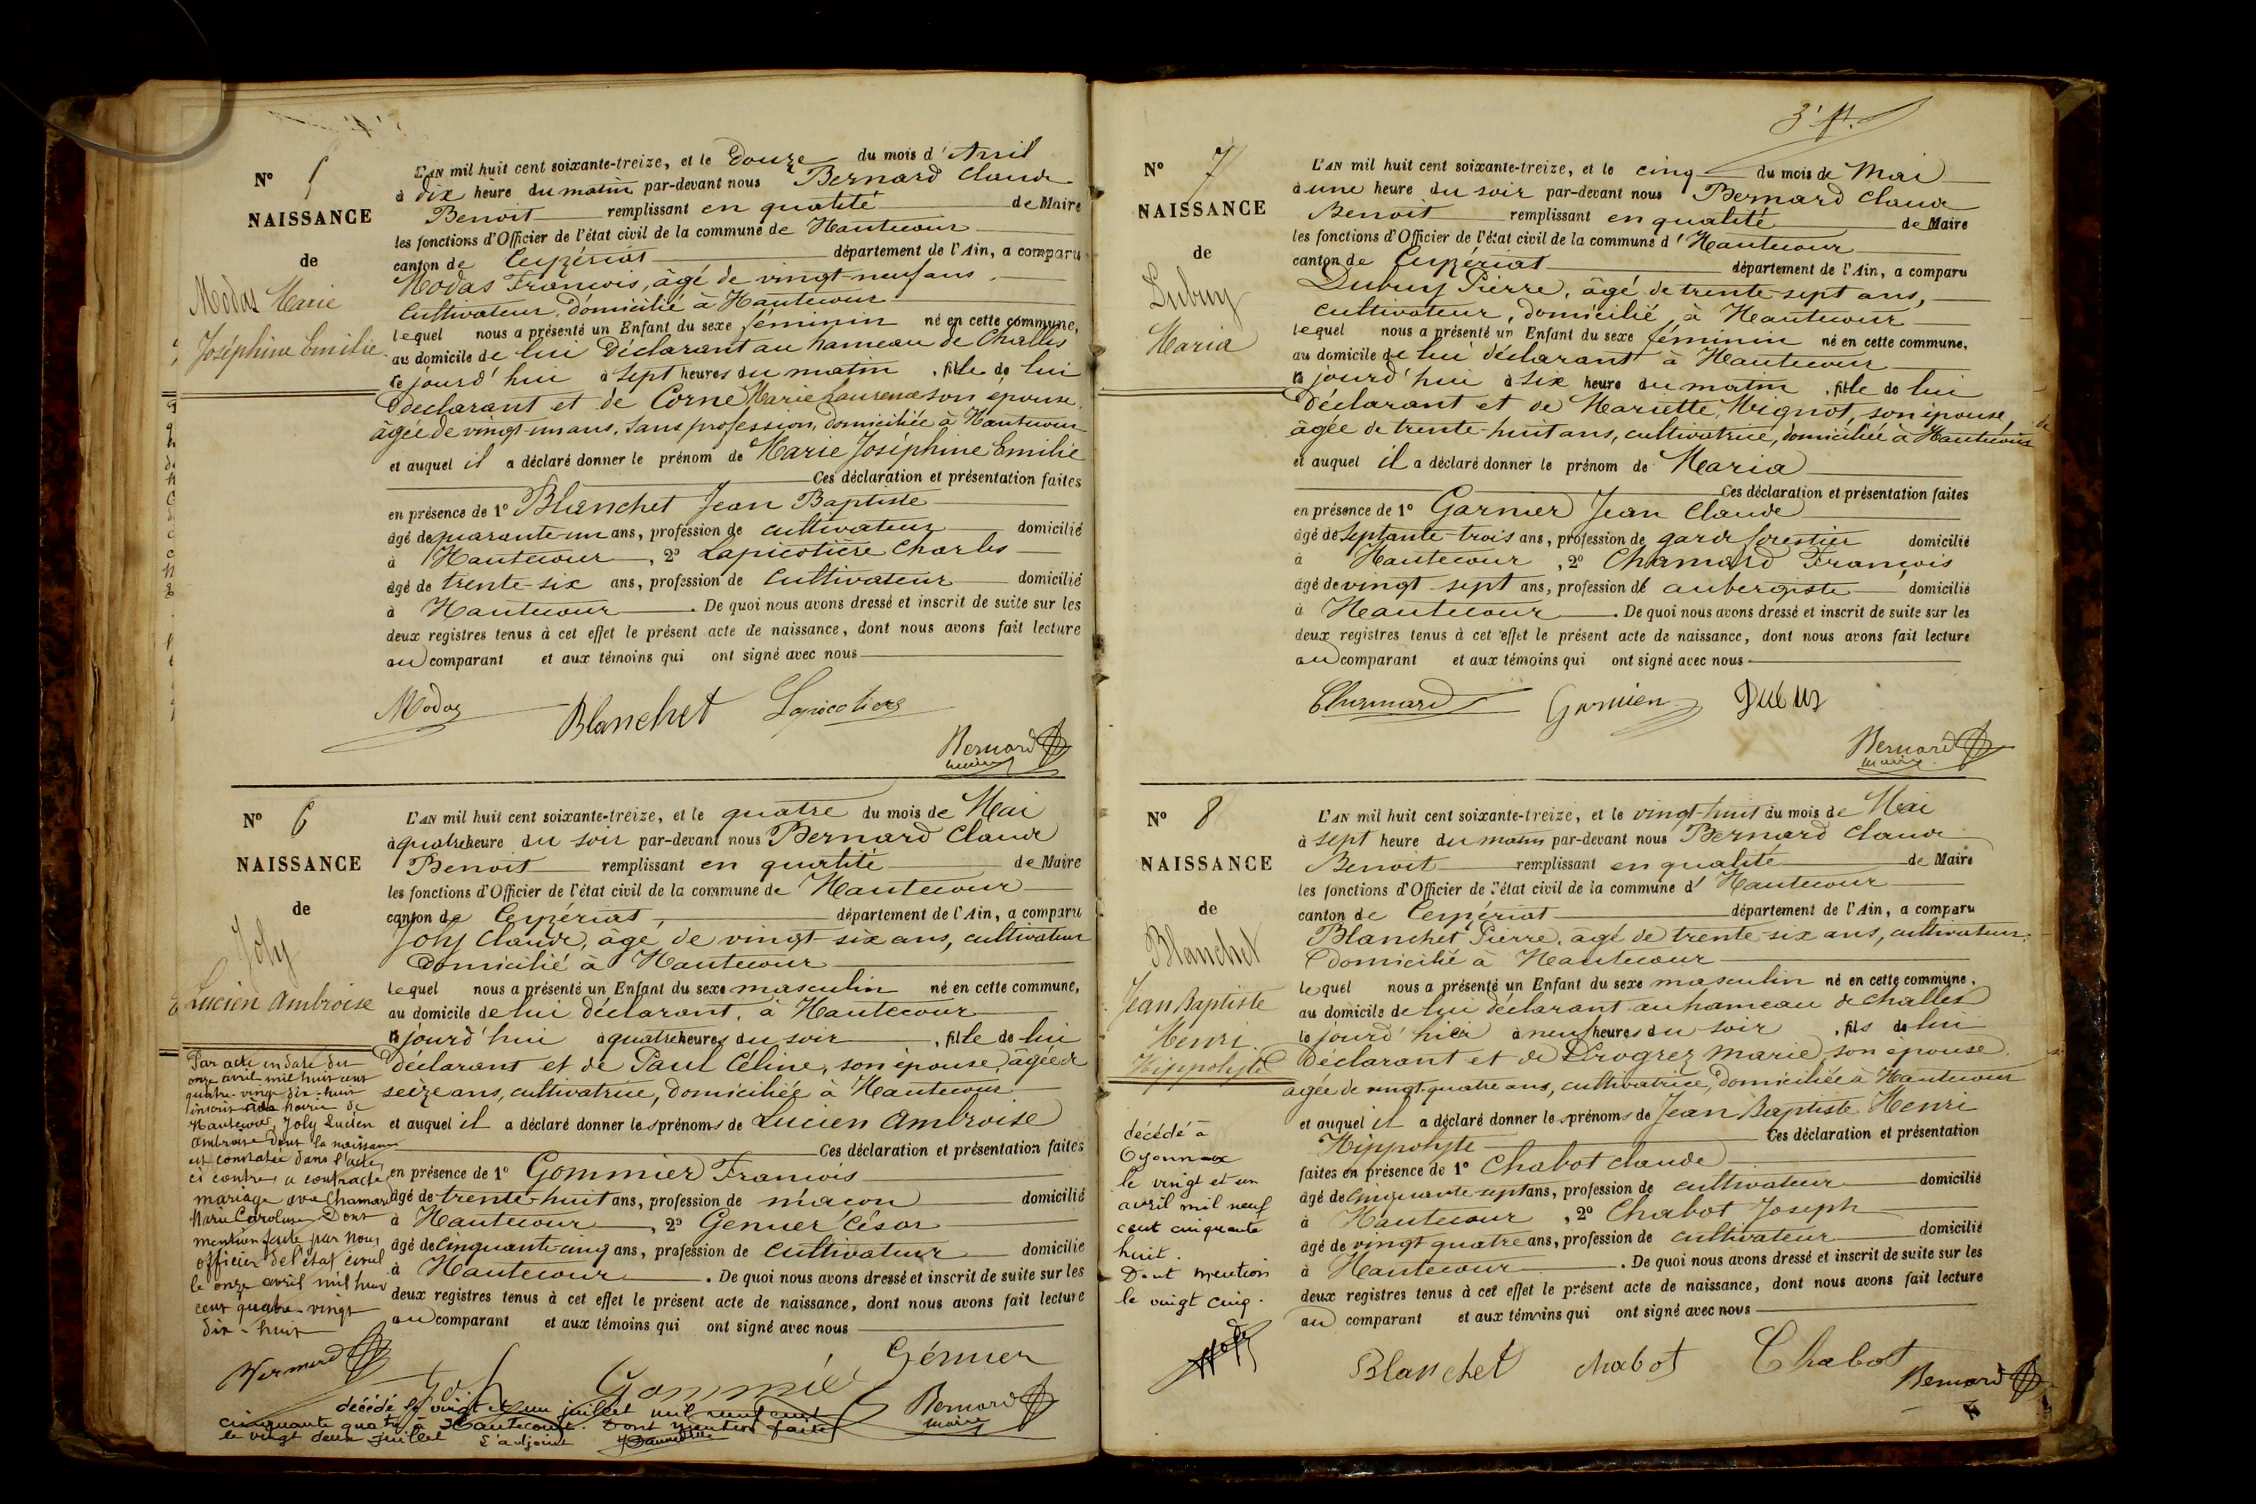 N° 5
NAISSANCE
de
Modas Marie
Joséphine Emilie
L'AN mil huit cent soixante-treize, et le Douze du mois d'Avril
à dix heure du matin par-devant nous Bernard Claude
Benoit remplissant en qualité de Maire
les fonctions d'Officier de l'état civil de la commune de Hautecour
canton de Ceyzériat département de l'Ain, a comparu
Modas François, âgé de vingt-neuf ans,
cultivateur, domicilié à Hautecour
lequel nous a présenté un Enfant du sexe féminin né en cette commune,
au domicile de lui Déclarant au hameau de Challes
ce jourd'hui à sept heures du matin, fille de lui
Déclarant et de Corne Marie Laurence son épouse,
âgée de vingt-un ans, sans profession, domiciliée à Hautecour
et auquel il a déclaré donner le prénom de Marie Joséphine Emilie
Ces déclaration et présentation faites
en présence de 1° Blanchet Jean Baptiste
âgé de quarante-un ans, profession de cultivateur domicilié
à Hautecour, 2° Lapicotière Charles
âgé de trente-six ans, profession de cultivateur domicilié
à Hautecour. De quoi nous avons dressé et inscrit de suite sur les
deux registres tenus à cet effet le présent acte de naissance, dont nous avons fait lecture
au comparant et aux témoins qui ont signé avec nous
Modas Blanchet Lapicotière
Bernard
maire
N° 6
NAISSANCE
de
Joly
Lucien Ambroise
Par acte en date du
onze avril mil huit cent
quatre-vingt dix-huit
inscrit à la mairie de
Hautecour, Joly Lucien
Ambroise dont la naissance
est constatée dans l'acte
ci contre a contracté
mariage avec Chamard
Marie Caroline Dont
mention faite par Nous
officier de l'état civil
le onze avril mil huit
cent quatre-vingt
dix-huit
Bernard
L'AN mil huit cent soixante-treize, et le quatre du mois de Mai
à quatre heure du soir par-devant nous Bernard Claude
Benoit remplissant en qualité de Maire
les fonctions d'Officier de l'état civil de la commune de Hautecour
canton de Ceyzériat, département de l'Ain, a comparu
Joly Claude, âgé de vingt-six ans, cultivateur
domicilié à Hautecour
lequel nous a présenté un Enfant du sexe masculin né en cette commune,
au domicile de lui déclarant, à Hautecour
ce jourd'hui à quatre heures du soir, fils de lui
déclarant et de Paul Céline, son épouse, âgée de
seize ans, cultivatrice, domiciliée à Hautecour
et auquel il a déclaré donner les prénoms de Lucien Ambroise
Ces déclaration et présentation faites
en présence de 1° Gommier François
âgé de trente-huit ans, profession de maçon domicilié
à Hautecour, 2° Genier César
âgé de cinquante-cinq ans, profession de cultivateur domicilié
à Hautecour. De quoi nous avons dressé et inscrit de suite sur les
deux registres tenus à cet effet le présent acte de naissance, dont nous avons fait lecture
au comparant et aux témoins qui ont signé avec nous
Génier
Joly Gommier Bernard
maire
décédé le vingt et un juillet mil neuf cent
cinquante quatre à Hautecour. Dont mention faite
le vingt deux juillet L'adjoint
3e f.
N° 7
NAISSANCE
de
Dubuy
Maria
L'AN mil huit cent soixante-treize, et le cinq du mois de Mai
à une heure du soir par-devant nous Bernard Claude
Benoit remplissant en qualité de Maire
les fonctions d'Officier de l'état civil de la commune d'Hautecour
canton de Ceyzériat département de l'Ain, a comparu
Dubuy Pierre, âgé de trente-sept ans,
cultivateur, domicilié à Hautecour
lequel nous a présenté un Enfant du sexe féminin né en cette commune,
au domicile de lui déclarant à Hautecour
ce jourd'hui à six heure du matin, fille de lui
déclarant et de Mariette Mignot, son épouse,
âgée de trente-huit ans, cultivatrice, domiciliée à Hautecour
et auquel il a déclaré donner le prénom de Maria
Ces déclaration et présentation faites
en présence de 1° Garnier Jean Claude
âgé de septante-trois ans, profession de garde forestier domicilié
à Hautecour, 2° Chamard François
âgé de vingt-sept ans, profession de aubergiste domicilié
à Hautecour. De quoi nous avons dressé et inscrit de suite sur les
deux registres tenus à cet effet le présent acte de naissance, dont nous avons fait lecture
au comparant et aux témoins qui ont signé avec nous
Chamard Garnier Dubuy
Bernard
maire
N° 8
NAISSANCE
de
Blanchet
Jean Baptiste
Henri
Hippolyte
décédé à
Oyonnax
le vingt et un
avril mil neuf
cent cinquante
huit.
Dont mention
le vingt cinq.
L'AN mil huit cent soixante-treize, et le vingt-huit du mois de Mai
à sept heure du matin par-devant nous Bernard Claude
Benoit remplissant en qualité de Maire
les fonctions d'Officier de l'état civil de la commune d'Hautecour
canton de Ceyzériat département de l'Ain, a comparu
Blanchet Pierre, âgé de trente-six ans, cultivateur,
domicilié à Hautecour
lequel nous a présenté un Enfant du sexe masculin né en cette commune,
au domicile de lui déclarant au hameau de Challes
le jourd'hier à neuf heures du soir, fils de lui
déclarant et de Merogrez Marie, son épouse,
âgée de vingt-quatre ans, cultivatrice, domiciliée à Hautecour
et auquel il a déclaré donner les prénoms de Jean Baptiste Henri
Hippolyte Ces déclaration et présentation
faites en présence de 1° Chabot Claude
âgé de cinquante-sept ans, profession de cultivateur domicilié
à Hautecour, 2° Chabot Joseph
âgé de vingt quatre ans, profession de cultivateur domicilié
à Hautecour. De quoi nous avons dressé et inscrit de suite sur les
deux registres tenus à cet effet le présent acte de naissance, dont nous avons fait lecture
au comparant et aux témoins qui ont signé avec nous
Blanchet chabot Chabot Bernard